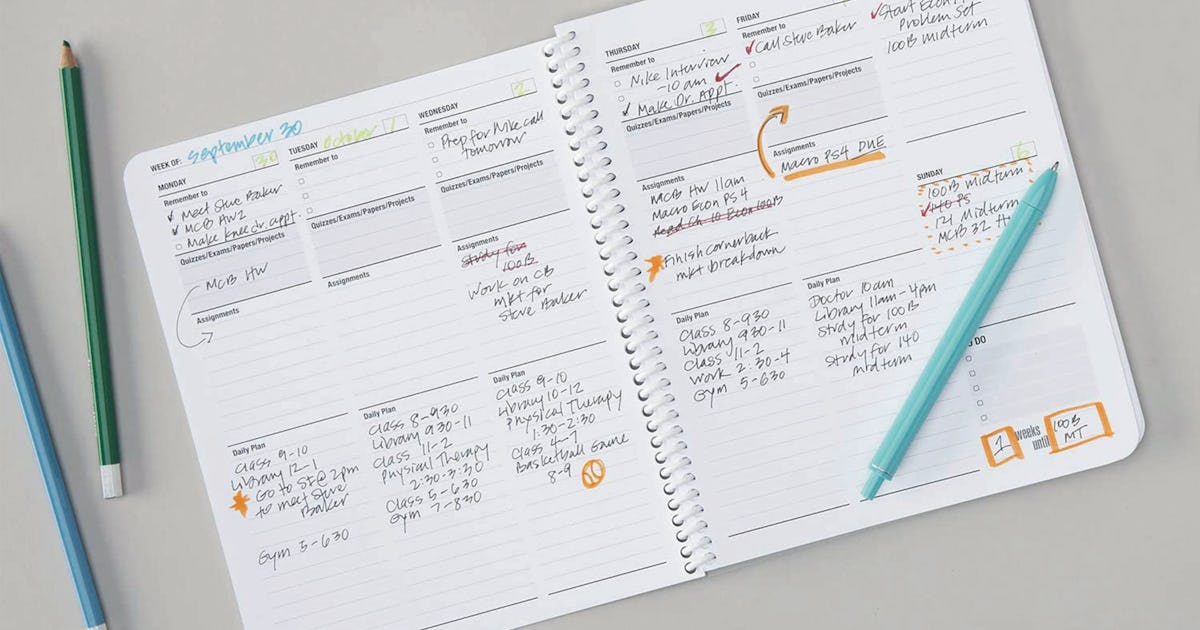 WEEK OF: September 30
MONDAY 30
Remember to
Meet Steve Baker
MCB HW2
Make knee dr. appt.
Quizzes/Exams/Papers/Projects
MCB HW
Assignments
Daily Plan
Class 9-10
Library 12-1
Go to SF @ 2pm
to meet Steve
Baker
Gym 5-630
TUESDAY October 1
Remember to
Quizzes/Exams/Papers/Projects
Assignments
Daily Plan
Class 8-930
Library 930-11
Class 11-2
Physical Therapy
2:30-3:30
Class 5-630
Gym 7-830
WEDNESDAY 2
Remember to
Prep for Nike call
tomorrow
Quizzes/Exams/Papers/Projects
Assignments
Study for
100B
Work on CB
mkt for
Steve Baker
Daily Plan
Class 9-10
Library 10-12
Physical Therapy
1:30-2:30
Class 4-7
Basketball Game
8-9
THURSDAY 3
Remember to
Nike Interview
-10 am
Make Dr. Appt.
Quizzes/Exams/Papers/Projects
Assignments
MCB HW 11am
Macro Econ PS 4
Read Ch 10 Econ 100B
Finish cornerback
mkt breakdown
Daily Plan
Class 8-930
Library 930-11
Class 11-2
Work 2:30-4
Gym 5-630
FRIDAY
Remember to
Call Steve Baker
Quizzes/Exams/Papers/Projects
Assignments
Macro PS4 DUE
Daily Plan
Doctor 10am
Library 11am-4pm
Study for 100B
midterm
Study for 140
midterm
Start Econ
Problem Set
100B midterm
SUNDAY 6
100B midterm
140 PS
Midterm
MCB 32
DO
1 weeks
until
100B
MT